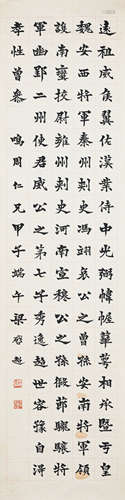 遠祖威侯翼佐漢業侍中光華萼相承暨乎皇
魏安西將軍秦州刺史馮翊哀公之曾孫安南將軍領
護南蠻校尉雍州刺史河南宣穆公之孫假節龍驤將
軍豳郢二州使君威公之第七子秀逸超世容豫自得
孝性曾參 鳴周仁兄 甲子端午 梁啟超